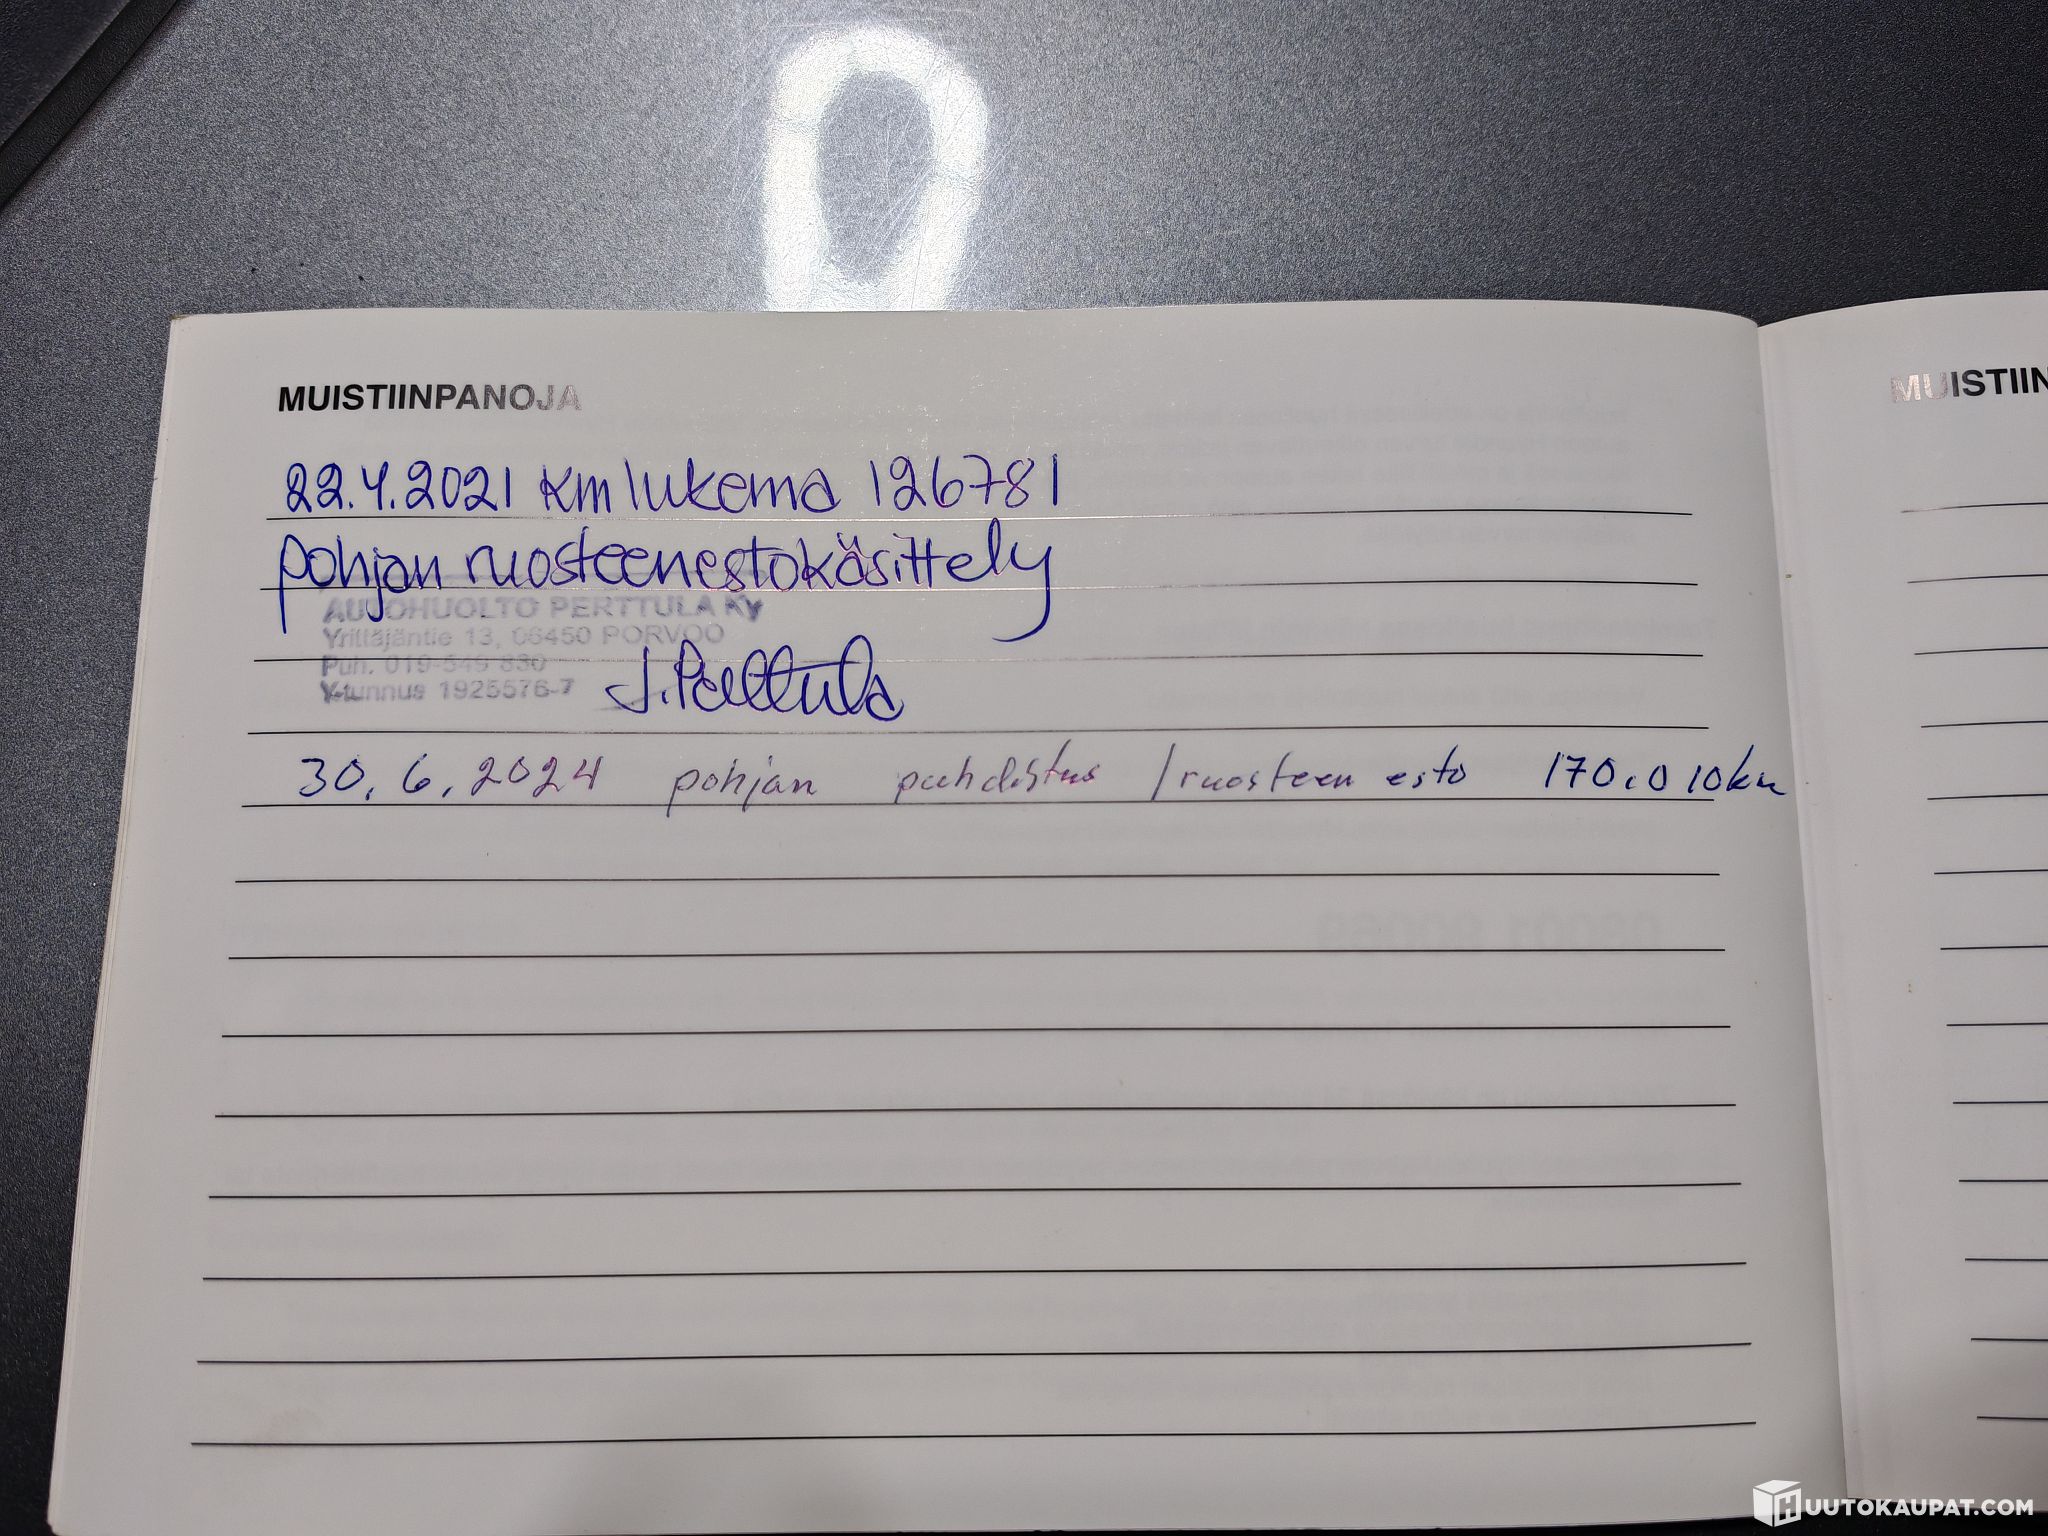 MUISTIINPANOJA
22.4.2021 km lukema 126781
pohjan ruosteenestokäsittely
AUTOHUOLTO PERTTULA Ky
Yrittäjäntie 13, 06450 PORVOO
Puh. 019-549 830
Y-tunnus 1925576-7
J. Perttula
30.6.2024 pohjan puhdistus / ruosteen esto 170.010km
MUISTIIN
HUUTOKAUPAT.COM